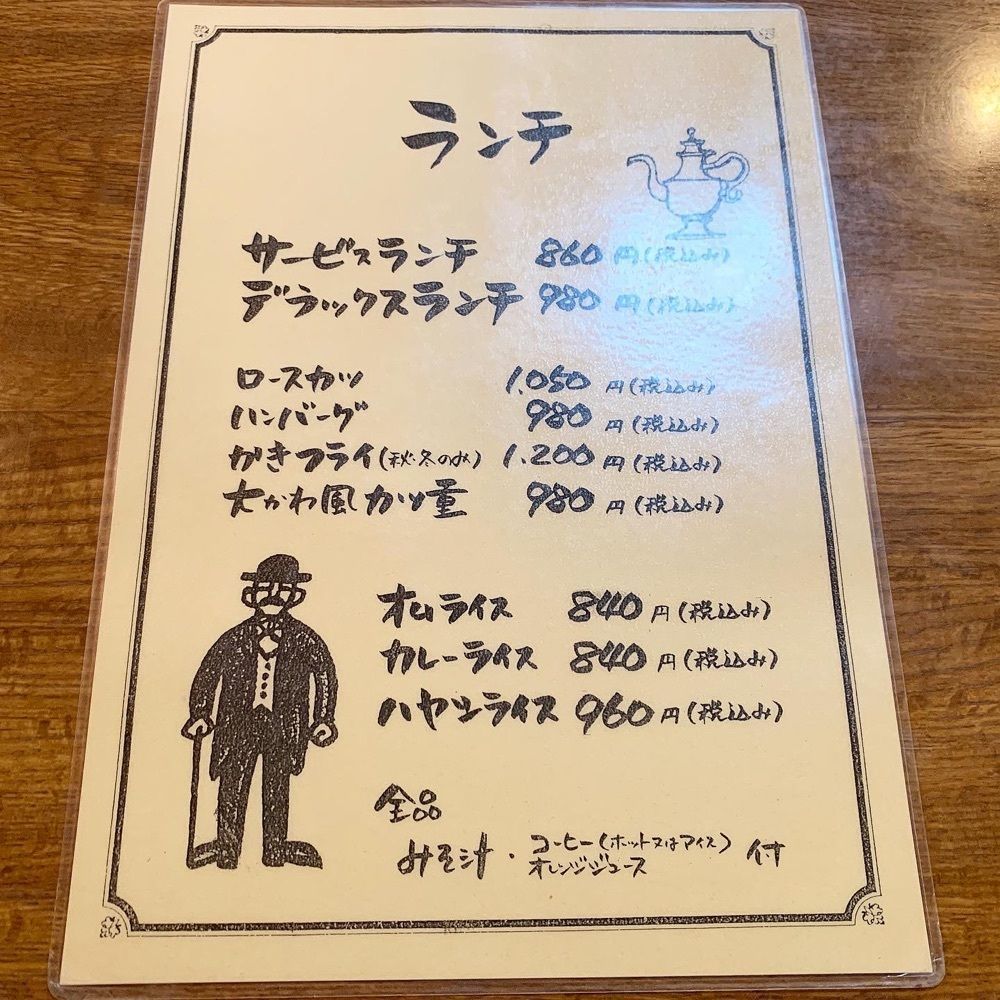 ランチ
サービスランチ 860円(税込み)
デラックスランチ 980円(税込み)
ロースカツ 1.050円(税込み)
ハンバーグ 980円(税込み)
かきフライ(秋・冬のみ) 1.200円(税込み)
大かわ風カツ重 980円(税込み)
オムライス 840円(税込み)
カレーライス 840円(税込み)
ハヤシライス 960円(税込み)
全品
みそ汁・コーヒー(ホット又はアイス) 付
オレンジジュース